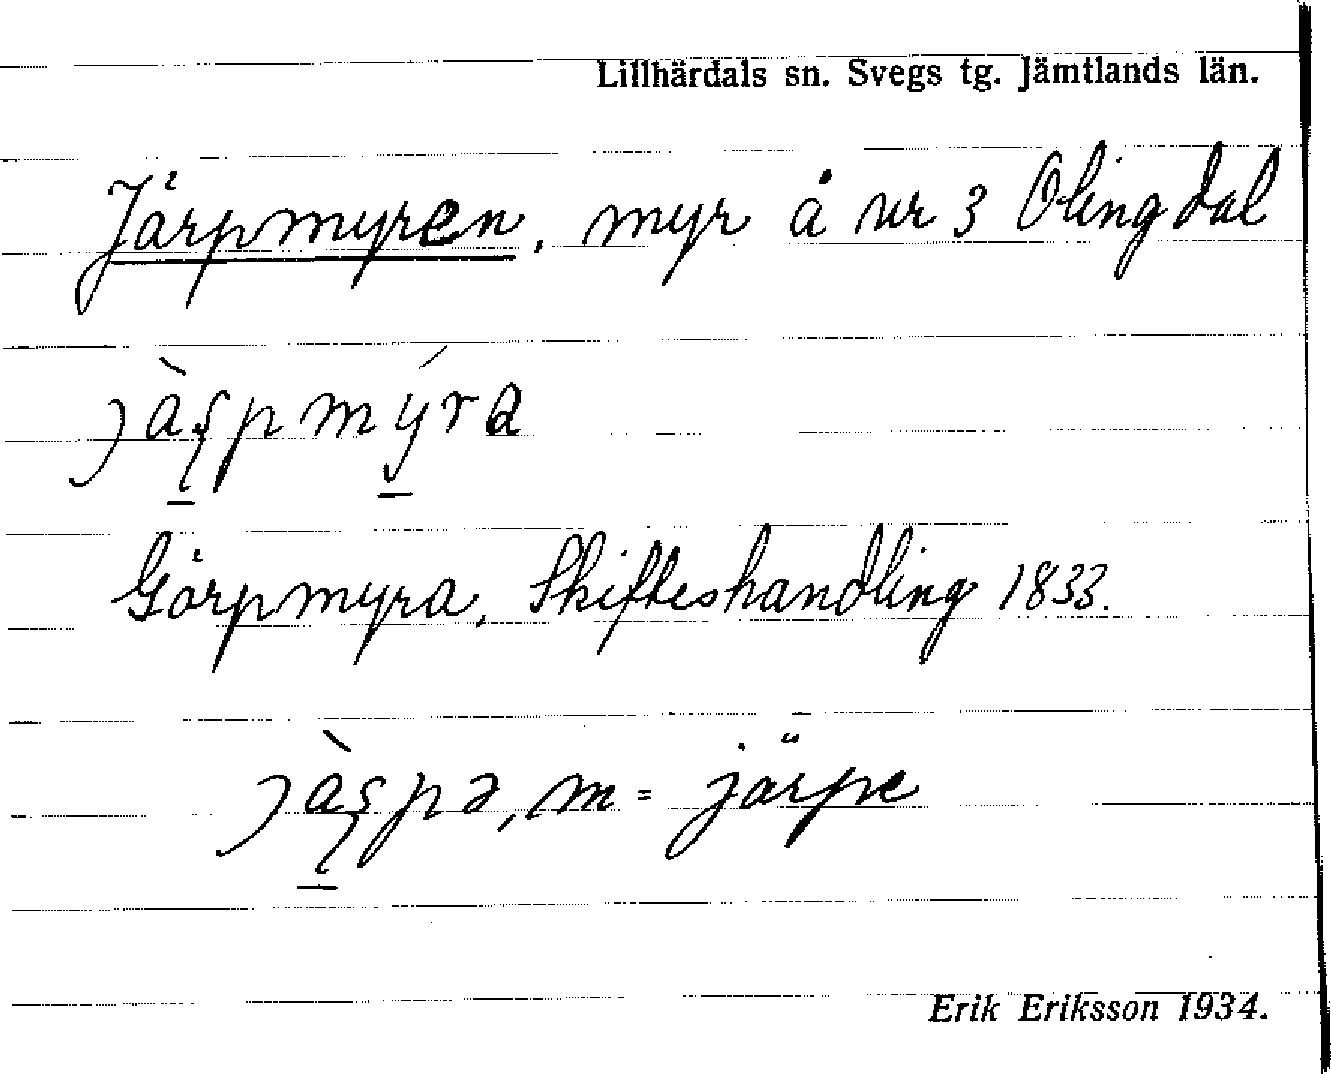 Lillhärdals sn. Svegs tg. Jämtlands län.
Järpmyren, myr å nr 3 Olingdal
jàʂpmýra
Görpmyra, Skifteshandling 1833.
jàʂpə, m = järpe
Erik Eriksson 1934.